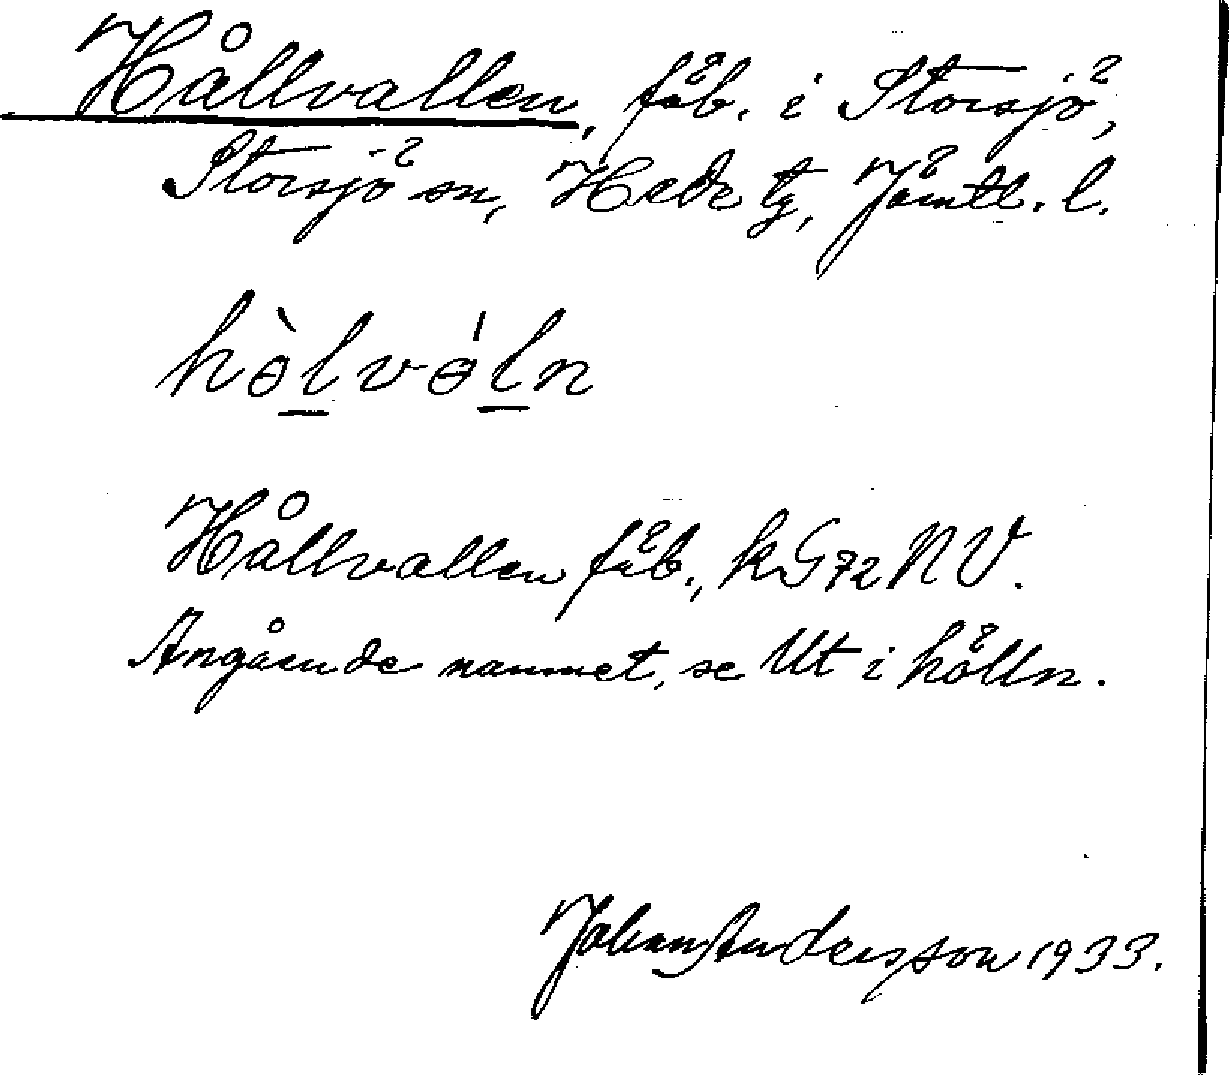 Hållvallen, fäb. i Storsjö,
Storsjö sn, Hede tg, Jämtl. l.
hə̀lvə́ln
Hållvallen fäb., kG72NV.
Angående namnet, se Ut i hölln.
Johan Andersson 1933.